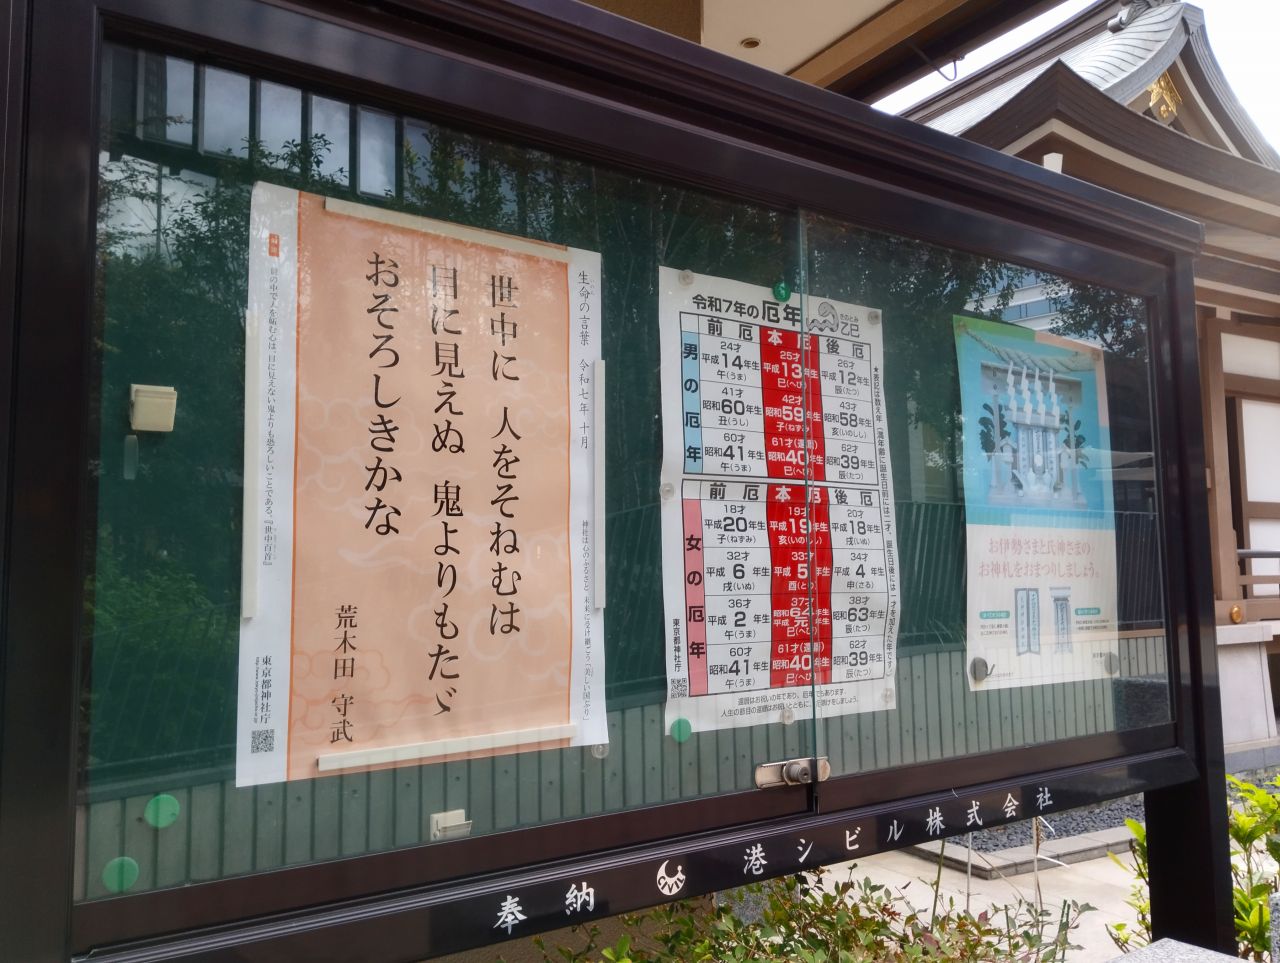 生命の言葉 令和七年十月
神社は心のふるさと 未来に受け継ごう「美しい国ぶり」
世中に 人をそねむは
目に見えぬ 鬼よりもたゞ
おそろしきかな
荒木田 守武
世の中で人を妬む心は、目に見えない鬼よりも恐ろしいことである。『世中百首』
東京都神社庁
令和7年の厄年
きのとみ
乙巳
男の厄年
前厄 本厄 後厄
24才 25才 26才
平成14年生 平成13年生 平成12年生
午(うま) 巳(へび) 辰(たつ)
41才 42才 43才
昭和60年生 昭和59年生 昭和58年生
丑(うし) 子(ねずみ) 亥(いのしし)
60才 61才(還暦) 62才
昭和41年生 昭和40年生 昭和39年生
午(うま) 巳(へび) 辰(たつ)
女の厄年
前厄 本厄 後厄
18才 19才 20才
平成20年生 平成19年生 平成18年生
子(ねずみ) 亥(いのしし) 戌(いぬ)
32才 33才 34才
平成6年生 平成5年生 平成4年生
戌(いぬ) 酉(とり) 申(さる)
36才 37才 38才
平成2年生 昭和64年生 平成元年生 昭和63年生
午(うま) 巳(へび) 辰(たつ)
60才 61才(還暦) 62才
昭和41年生 昭和40年生 昭和39年生
午(うま) 巳(へび) 辰(たつ)
★表記は数え年(満年齢に誕生日前には二才、誕生日後には一才を加えた年です)
東京都神社庁
還暦はお祝いの年であり、厄年でもあります
人生の節目の還暦はお祝いとともに、厄祓けをしましょう。
お伊勢さまと氏神さまの
お神札をおまつりしましょう。
奉納 港シビル株式会社